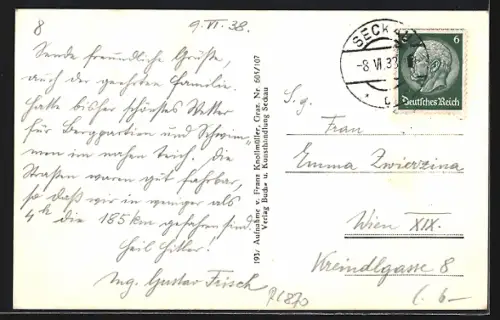 8
9. VI. 38.
Sende freundliche Grüße,
auch der geehrten Familie.
Hatte bisher schönstes Wetter
für Bergpartien und Schwim-
men im nahen Teich. Die
Straßen waren gut fahrbar,
so daß wir in weniger als
4h die 185 km gefahren sind.
Heil Hitler!
Ing. Gustav Frisch
193. Aufnahme v. Franz Knollmüller, Graz. Nr. 601/107
Verlag Buch- u. Kunsthandlung Seckau
SECKAU
-8 VI 38
6
Deutsches Reich
S. g.
Frau
Emma Zwierzina
Wien XIX.
Kreindlgasse 8